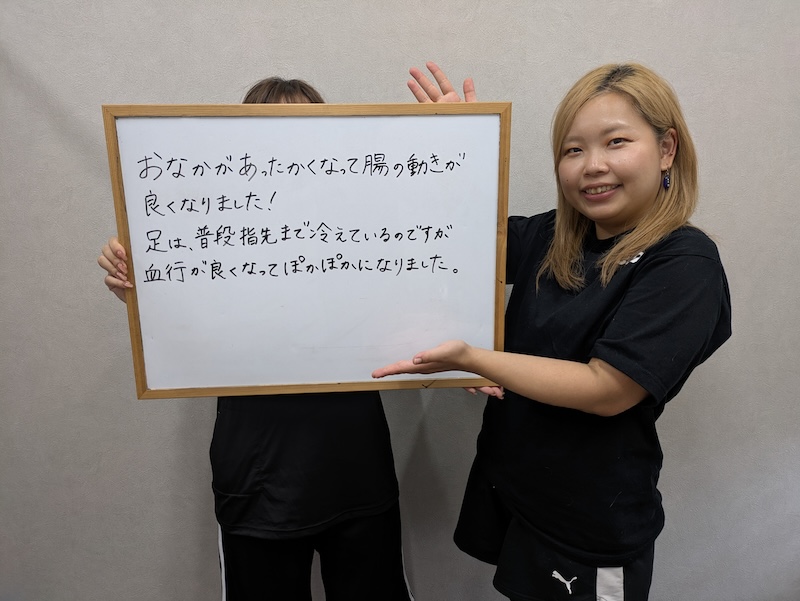 おなかがあったかくなって腸の動きが
良くなりました!
足は、普段指先まで冷えているのですが
血行が良くなってぽかぽかになりました。